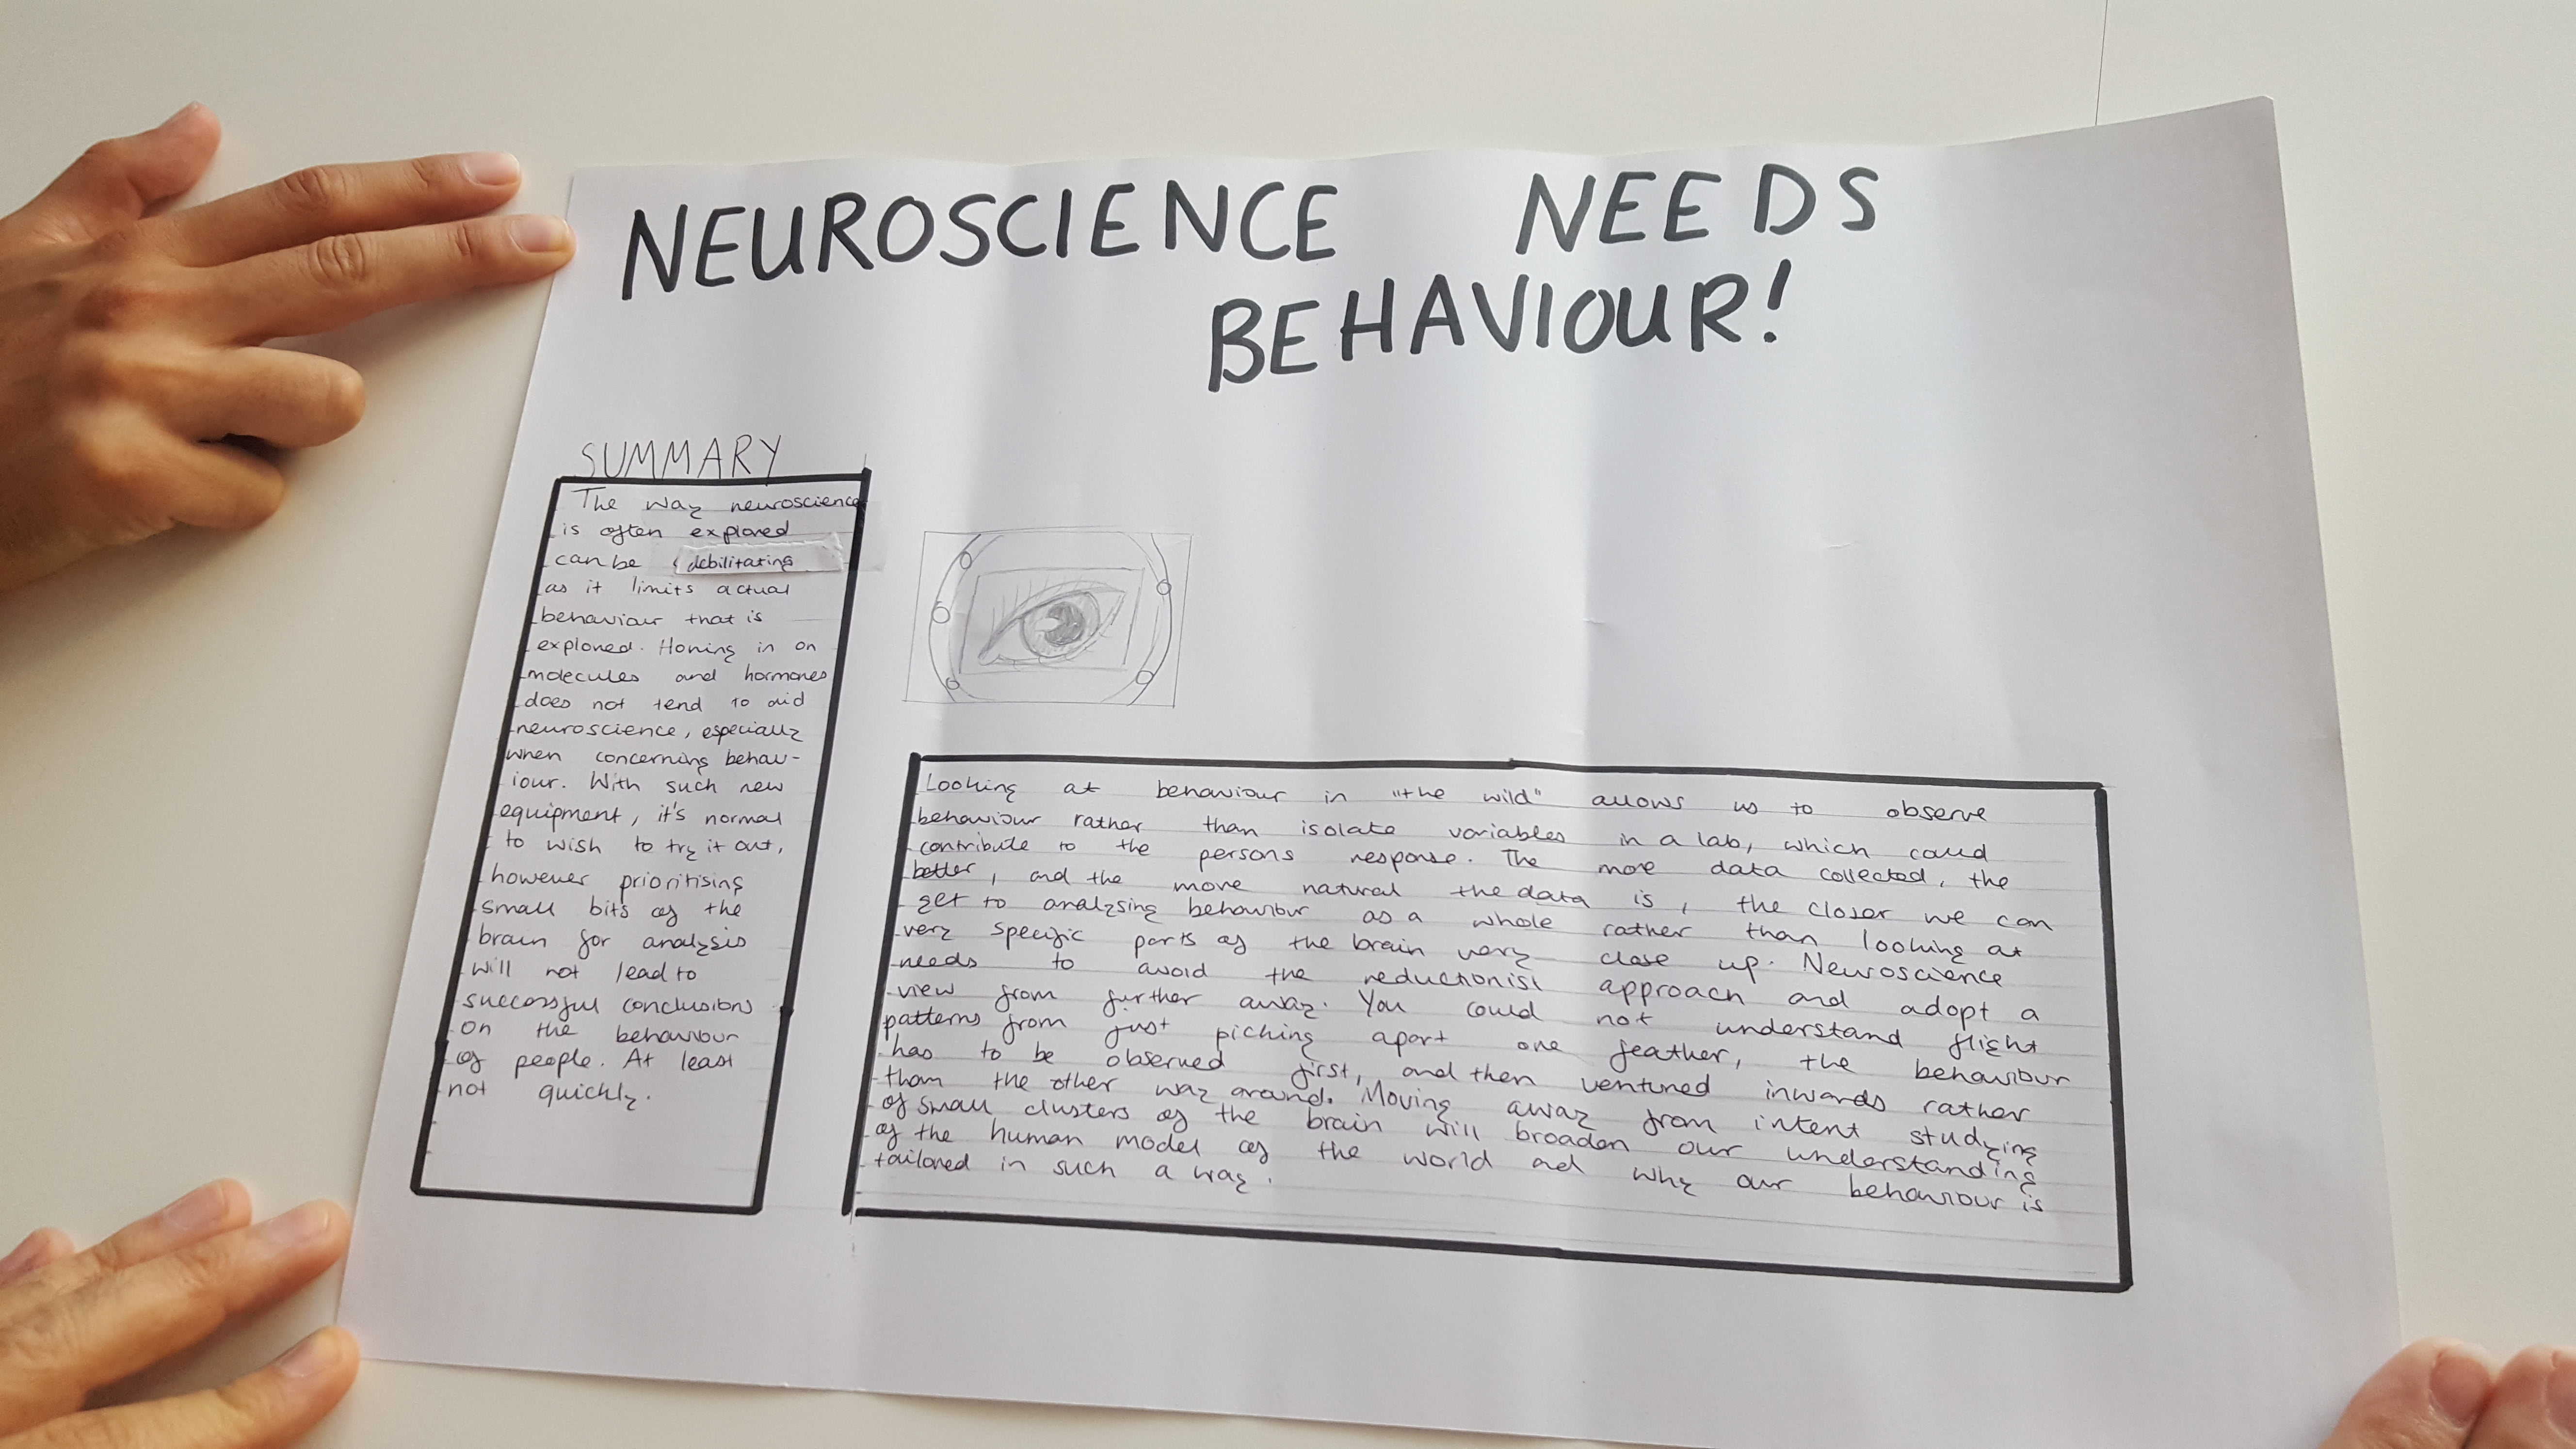 NEUROSCIENCE NEEDS
BEHAVIOUR!
SUMMARY
The way neuroscience
is often explored
can be debilitating
as it limits actual
behaviour that is
explored. Honing in on
molecules and hormones
does not tend to aid
neuroscience, especially
when concerning behav-
iour. With such new
equipment, it's normal
to wish to try it out,
however prioritising
small bits of the
brain for analysis
will not lead to
successful conclusions
on the behaviour
of people. At least
not quickly.
Looking at behaviour in "the wild" allows us to observe
behaviour rather than isolate variables in a lab, which could
contribute to the persons response. The more data collected, the
better, and the more natural the data is, the closer we can
get to analysing behaviour as a whole rather than looking at
very specific parts of the brain very close up. Neuroscience
needs to avoid the reductionist approach and adopt a
view from further away. You could not understand flight
patterns from just picking apart one feather, the behaviour
has to be observed first, and then ventured inwards rather
than the other way around. Moving away from intent studying
of small clusters of the brain will broaden our understanding
of the human model of the world ad why our behaviour is
tailored in such a way.